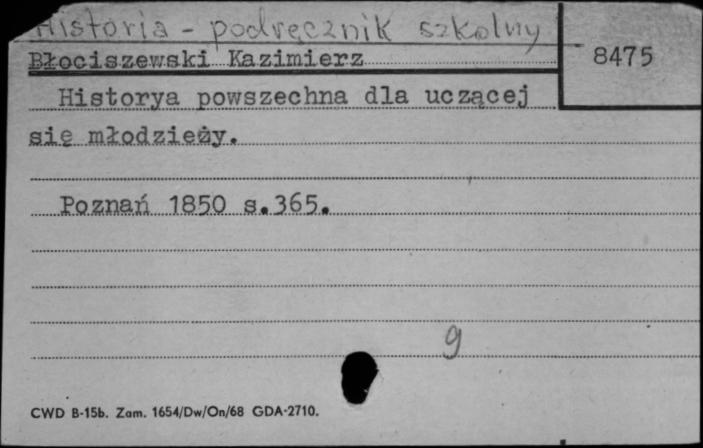 Historia - podręcznik szkolny
Błociszewski Kazimierz
8475
Historya powszechna dla uczącej
się młodzieży.
Poznań 1850 s.365.
9
CWD B-15b. Zam. 1654/Dw/On/68 GDA-2710.